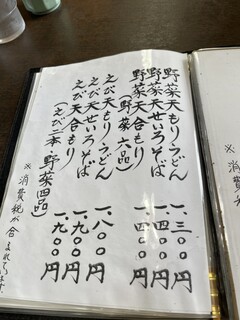 野菜天もり、うどん 一、三〇〇円
野菜天せいろそば 一、四〇〇円
野菜天合もり 一、四〇〇円
(野菜 六品)
えび天もり、うどん 一、八〇〇円
えび天せいろそば 一、九〇〇円
えび天合もり 一、九〇〇円
(えび二本 野菜四品)
※消費税が含まれています。
※消費